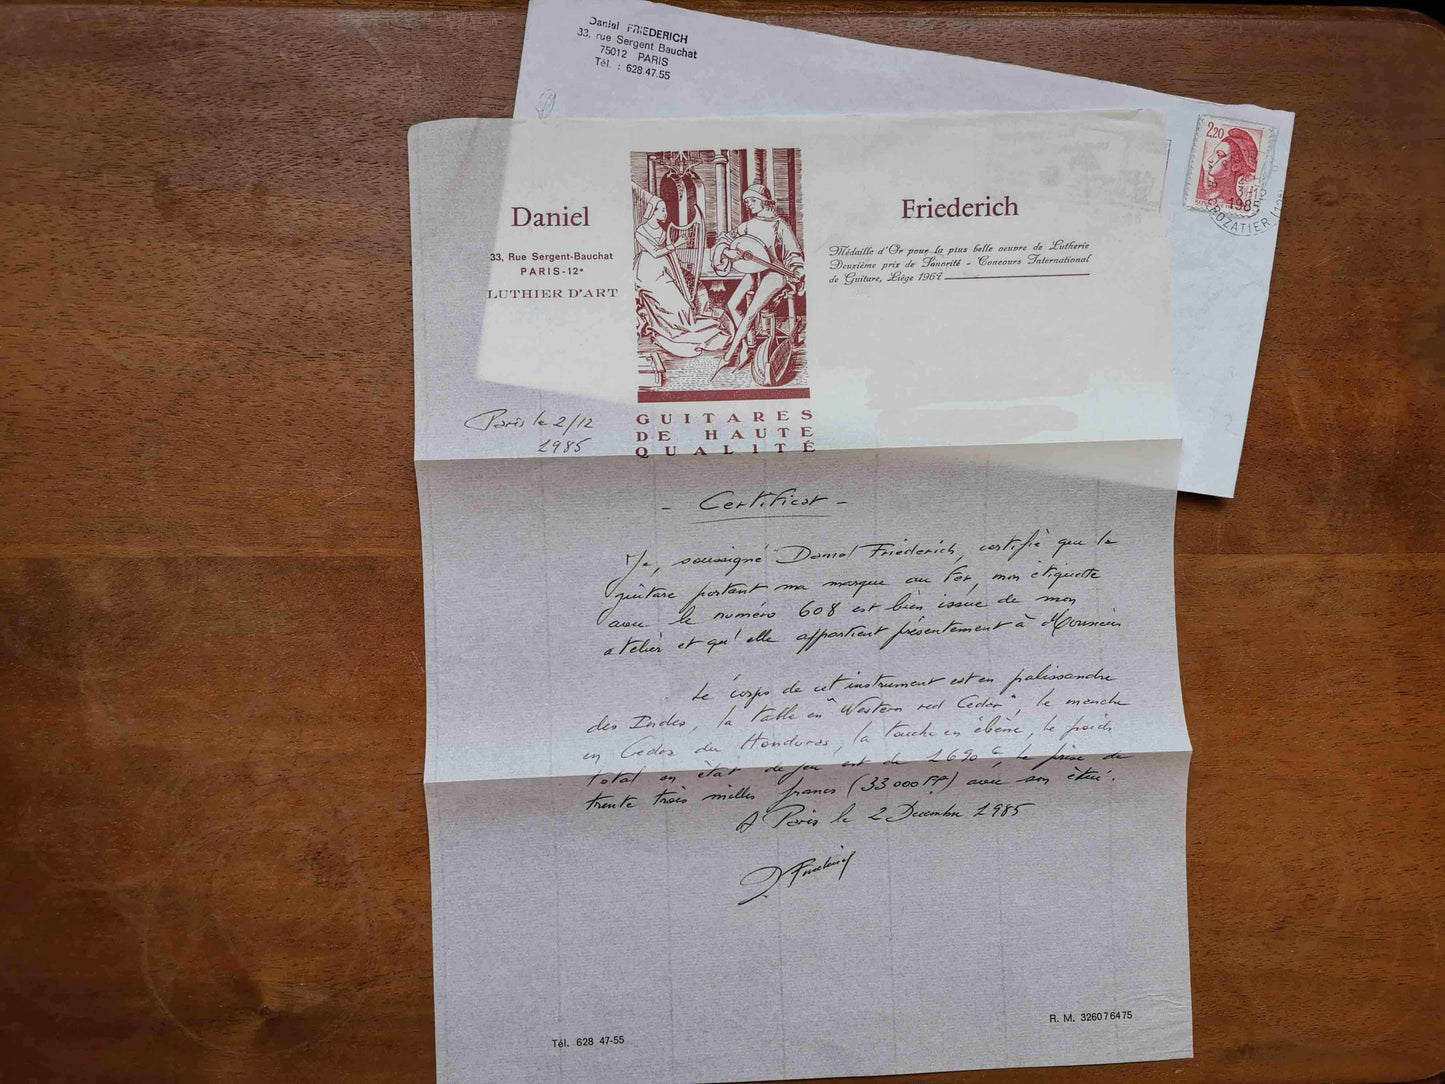 Daniel FRIEDERICH
33, rue Sergent Bauchat
75012 PARIS
Tél. : 628.47.55
2,20
1985
CROZATIER
Daniel
33, Rue Sergent-Bauchat
PARIS-12e
LUTHIER D'ART
Friederich
Médaille d'Or pour la plus belle oeuvre de Lutherie
Deuxième prix de Sonorité - Concours International
de Guitare, Liège 1967
GUITARES
DE HAUTE
QUALITÉ
Paris le 2/12
1985
- Certificat -
Je, soussigné Daniel Friederich, certifie que la
guitare portant ma marque au fer, mon étiquette
avec le numéro 608 est bien issue de mon
atelier et qu'elle appartient présentement à Monsieur
Le corps de cet instrument est en palissandre
des Indes, la table en "Western red Cedar", le manche
en Cedar du Honduras, la touche en ébène, le poids
total en état de jeu est de 1690 G, le prix de
trente trois milles francs (33000FF) avec son étui.
A Paris le 2 Décembre 1985
D. Friederich
Tél. 628 47-55
R. M. 326076475